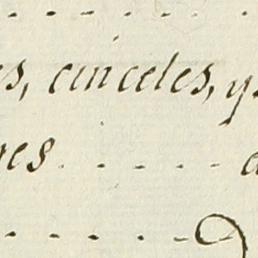 es, cinceles, y
res